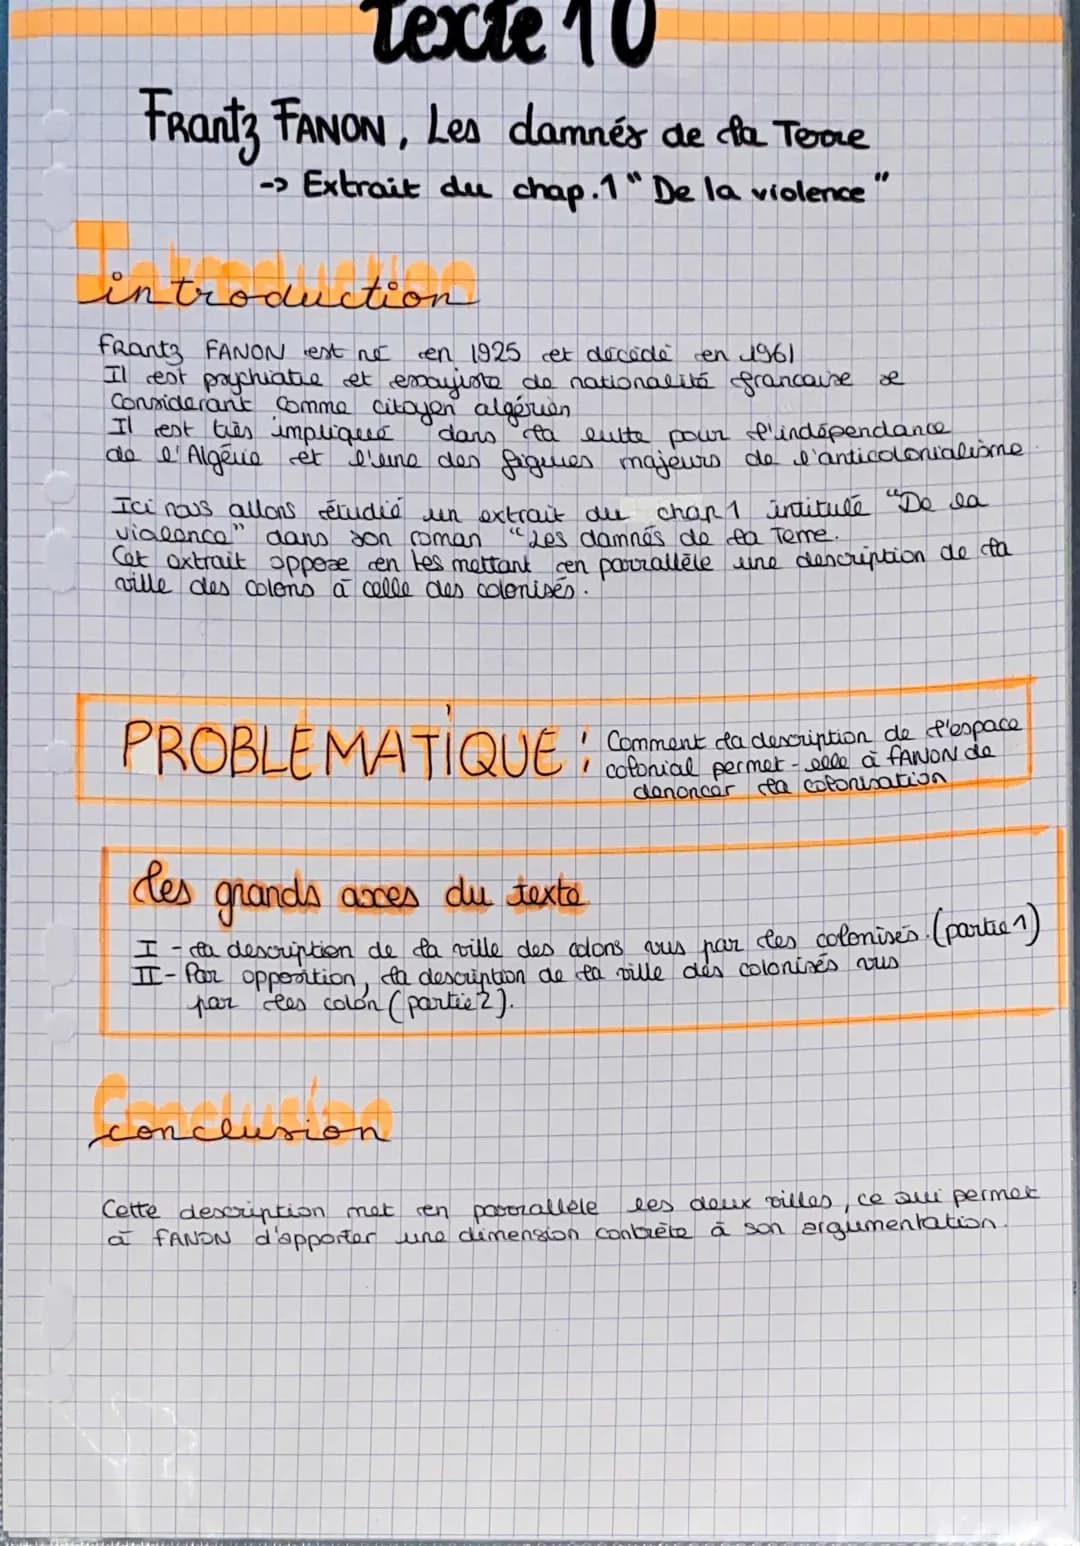 Texte 10
Frantz FANON, Les damnés de la Terre
-> Extrait du chap.1 "De la violence"
Introduction
introduction
Frantz FANON est né en 1925 et décédé en 1961
Il est psychiatre et essayiste de nationalité francaise se
Considerant comme citoyen algérien
Il est très impliqué dans la lutte pour l'indépendance
de l'Algérie et l'une des figures majeurs de l'anticolonialisme.
Ici nous allons étudié un extrait du chap 1 intitulé "De la
violence" dans son roman "Les damnés de la Terre.
Cet extrait oppose en les mettant en parrallèle une description de la
ville des colons à celle des colonisés.
PROBLÉMATIQUE : Comment la description de l'espace
colonial permet-elle à FANON de
denoncer la colonisation
Les grands axes du texte
I - la description de la ville des colons vus par les colonisés. (partie 1)
II - Par opposition, la description de la ville des colonisés vus
par les colon (partie 2).
Conclusion
conclusion
Cette description met en parrallèle les deux villes, ce qui permet
à FANON d'apporter une dimension contrète à son argumentation.